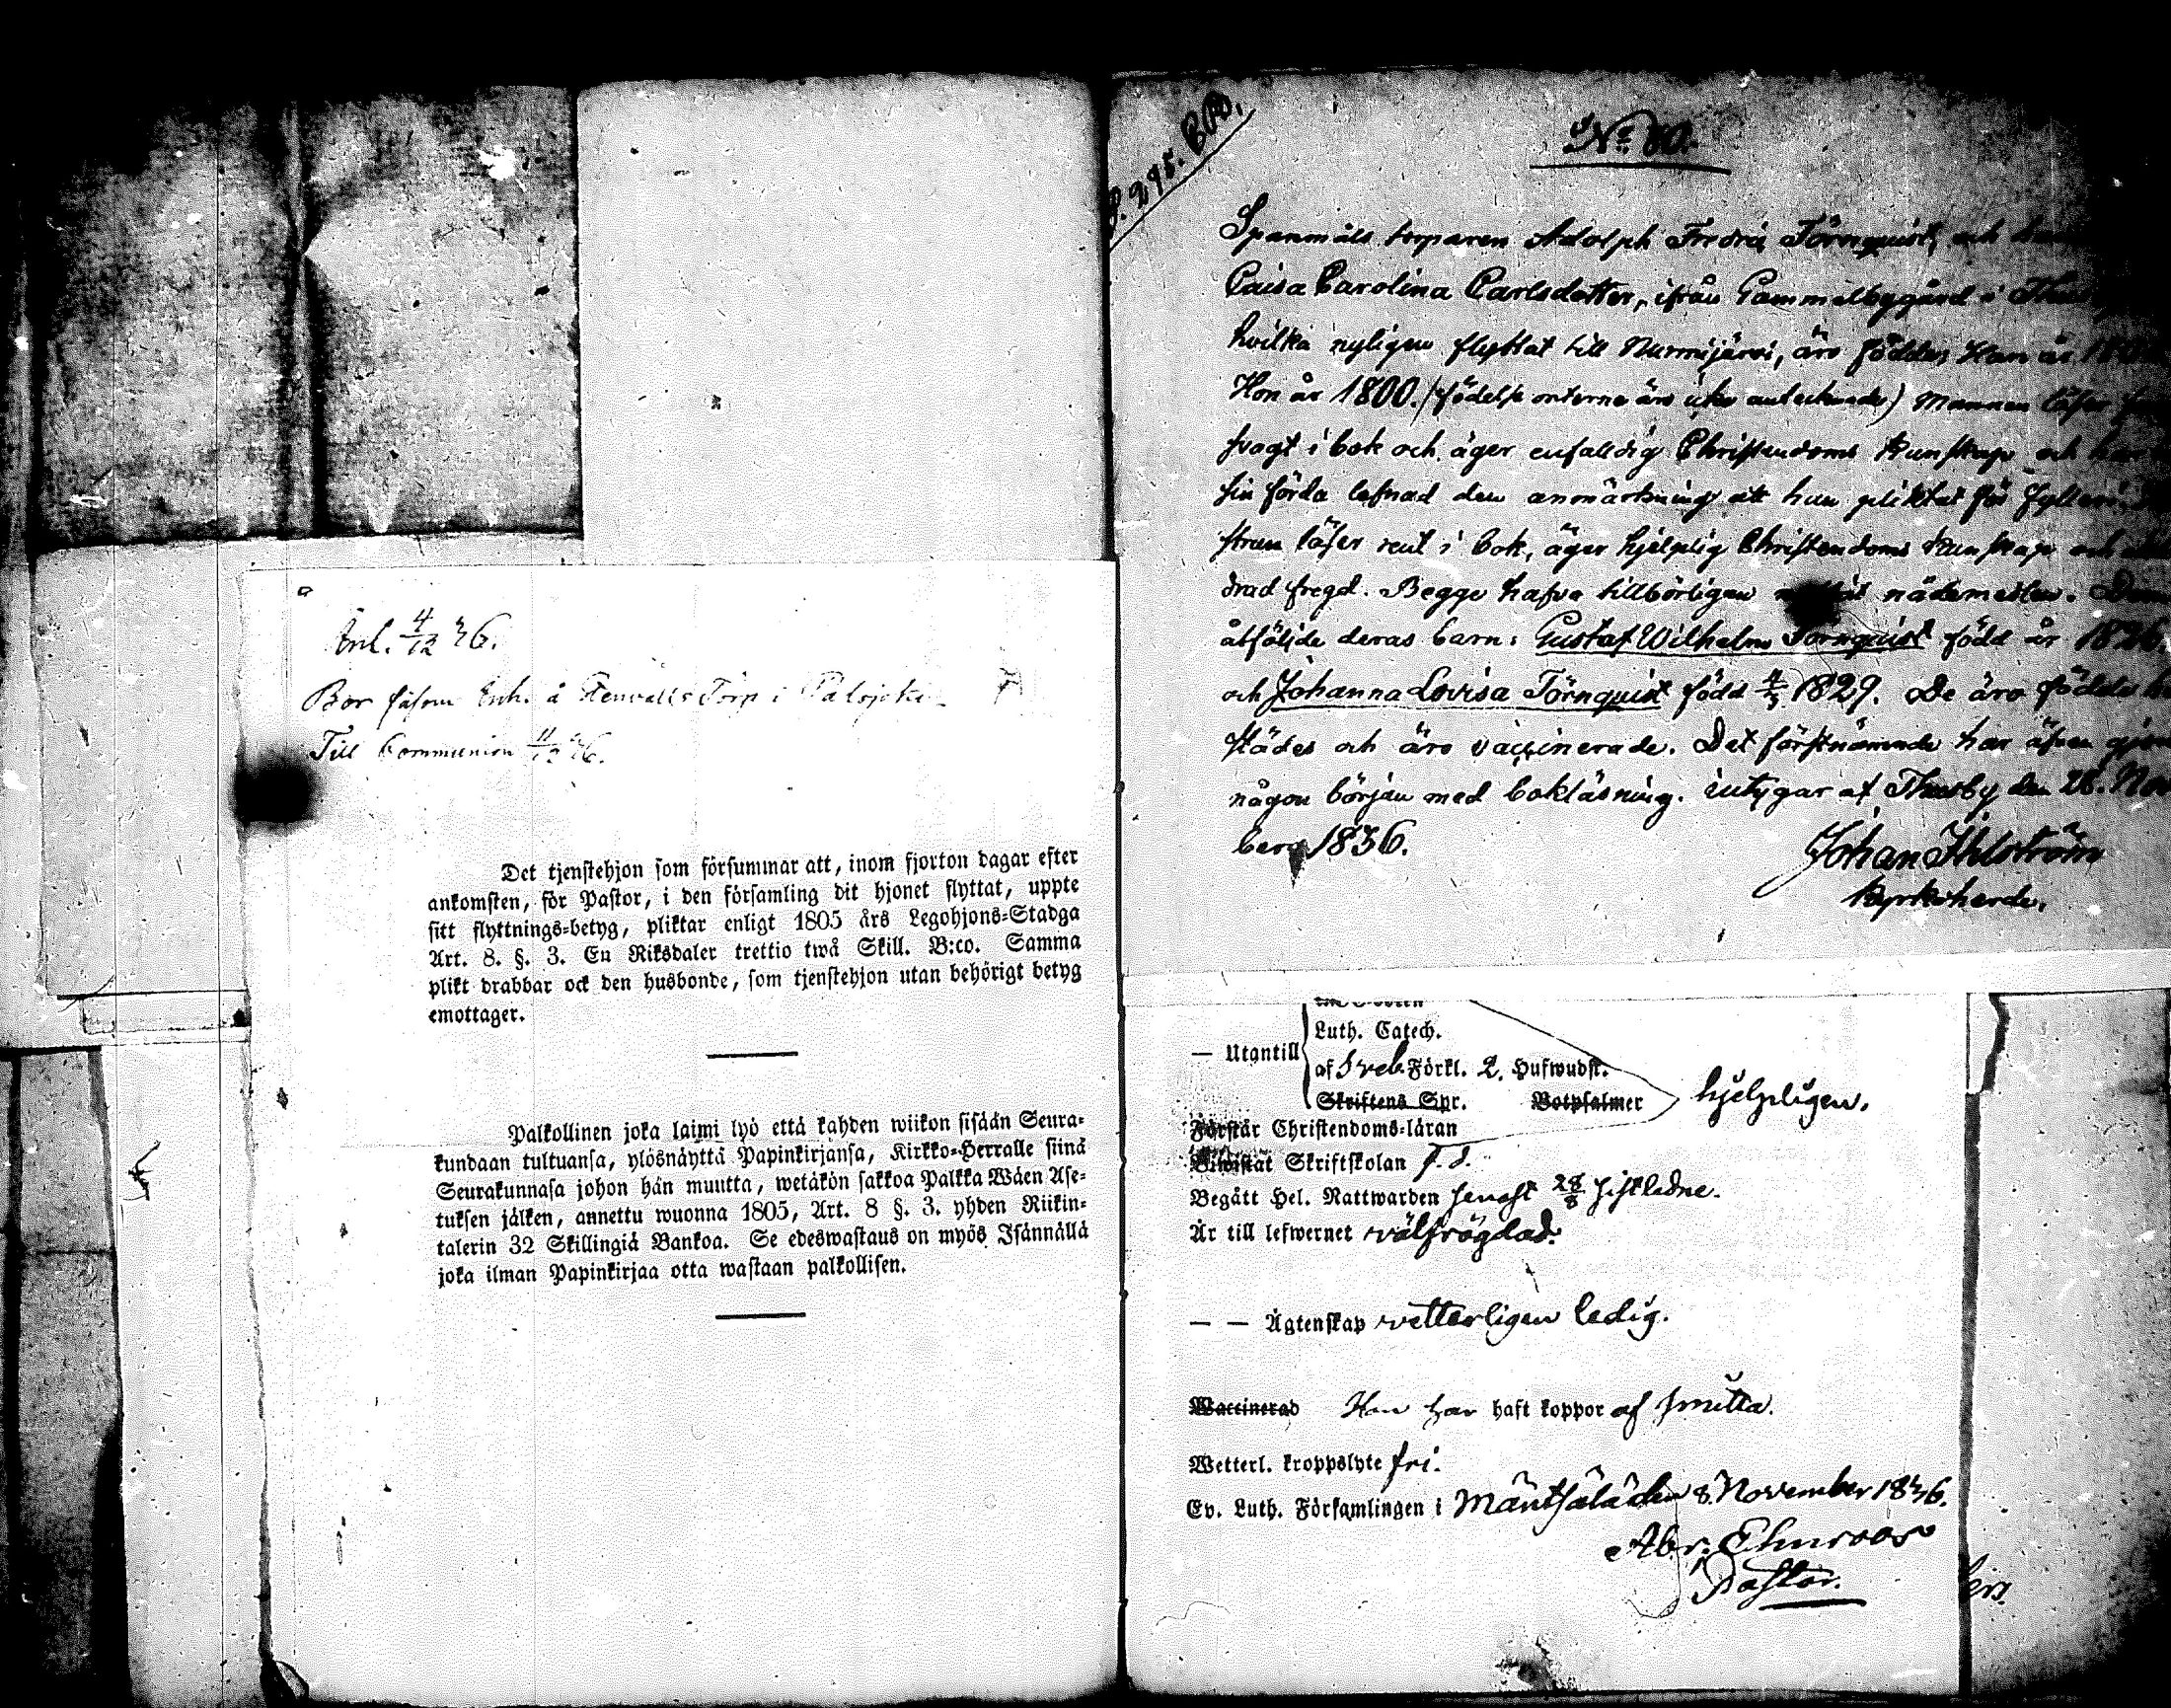 Anl. 4/12 36.
Bor såsom Inh. å Stenvalls Torp i Palojoki
Till Communion 4/12 36.
Det tjenstehjon som försummar att, inom fjorton dagar efter
ankomsten, för Pastor, i den församling dit hjonet flyttat, uppte
sitt flyttnings=betyg, pliktar enligt 1805 års Legohjons=Stadga
Art. 8. §. 3. En Riksdaler trettio twå Skill. B:co. Samma
plikt drabbar ock den husbonde, som tjenstehjon utan behörigt betyg
emottager.
Palkollinen joka laimi lyö että kahden wiikon sisään Seura=
kundaan tultuansa, ylösnäyttä Papinkirjansa, Kirkko=Herralle siinä
Seurakunnasa johon hän muutta, wetäkön sakkoa Palkka Wäen Ase=
tuksen jälken, annettu wuonna 1805, Art. 8 §. 3. yhden Riikin=
talerin 32 Skillingiä Bankoa. Se edeswastaus on myös Isännällä
joka ilman Papinkirjaa otta wastaan palkollisen.
No 80.
Spanmåls torparen Adolph Fredric Törnquist, och
Caisa Carolina Carlsdotter, ifrån Gammelbygård i
hvilka nyligen flyttat till Nurmijärvi, äro födde, Han år
Hon år 1800. (födelse orterne äro icke antecknade) Mannen läser
svagt i bok och äger enfalldig Christendoms kunskap och har
sin förda lefnad den anmärkning att han pliktat för fylleri.
strun läser rent i bok, äger hjelplig Christendoms kunskap och
drad fregd. Begge hafva tillbörligen nådemedlen.
åtföljde deras barn: Gustaf Wilhelm Törnquist född år
och Johanna Lovisa Törnquist född 4/3 1829. De äro födde
städes och äro vaccinerade. Det förstnämnde har äfven
någon början med bokläsning. intygar af Thusby den 28. Nov
berg 1836.
Johan Ahlström
Kyrkoherde.
Luth. Catech.
— Utantill af Sveb. Förkl. 2. Hufwudst.
Skriftens Spr. Botpsalmer
hjelpligen.
Förstår Christendoms=läran
Biwistat Skriftskolan
Begått Hel. Nattwarden senast 28/8 sistledne.
Är till lefwernet välfrägdad.
— — Ägtenskap vetterligen ledig.
Waccinerad Han har haft koppor af smitta.
Wetterl. kroppslyte fri.
Ev. Luth. Församlingen i Mäntsälä den 8. November 1836.
Abr. Ehnroos
Pastor.